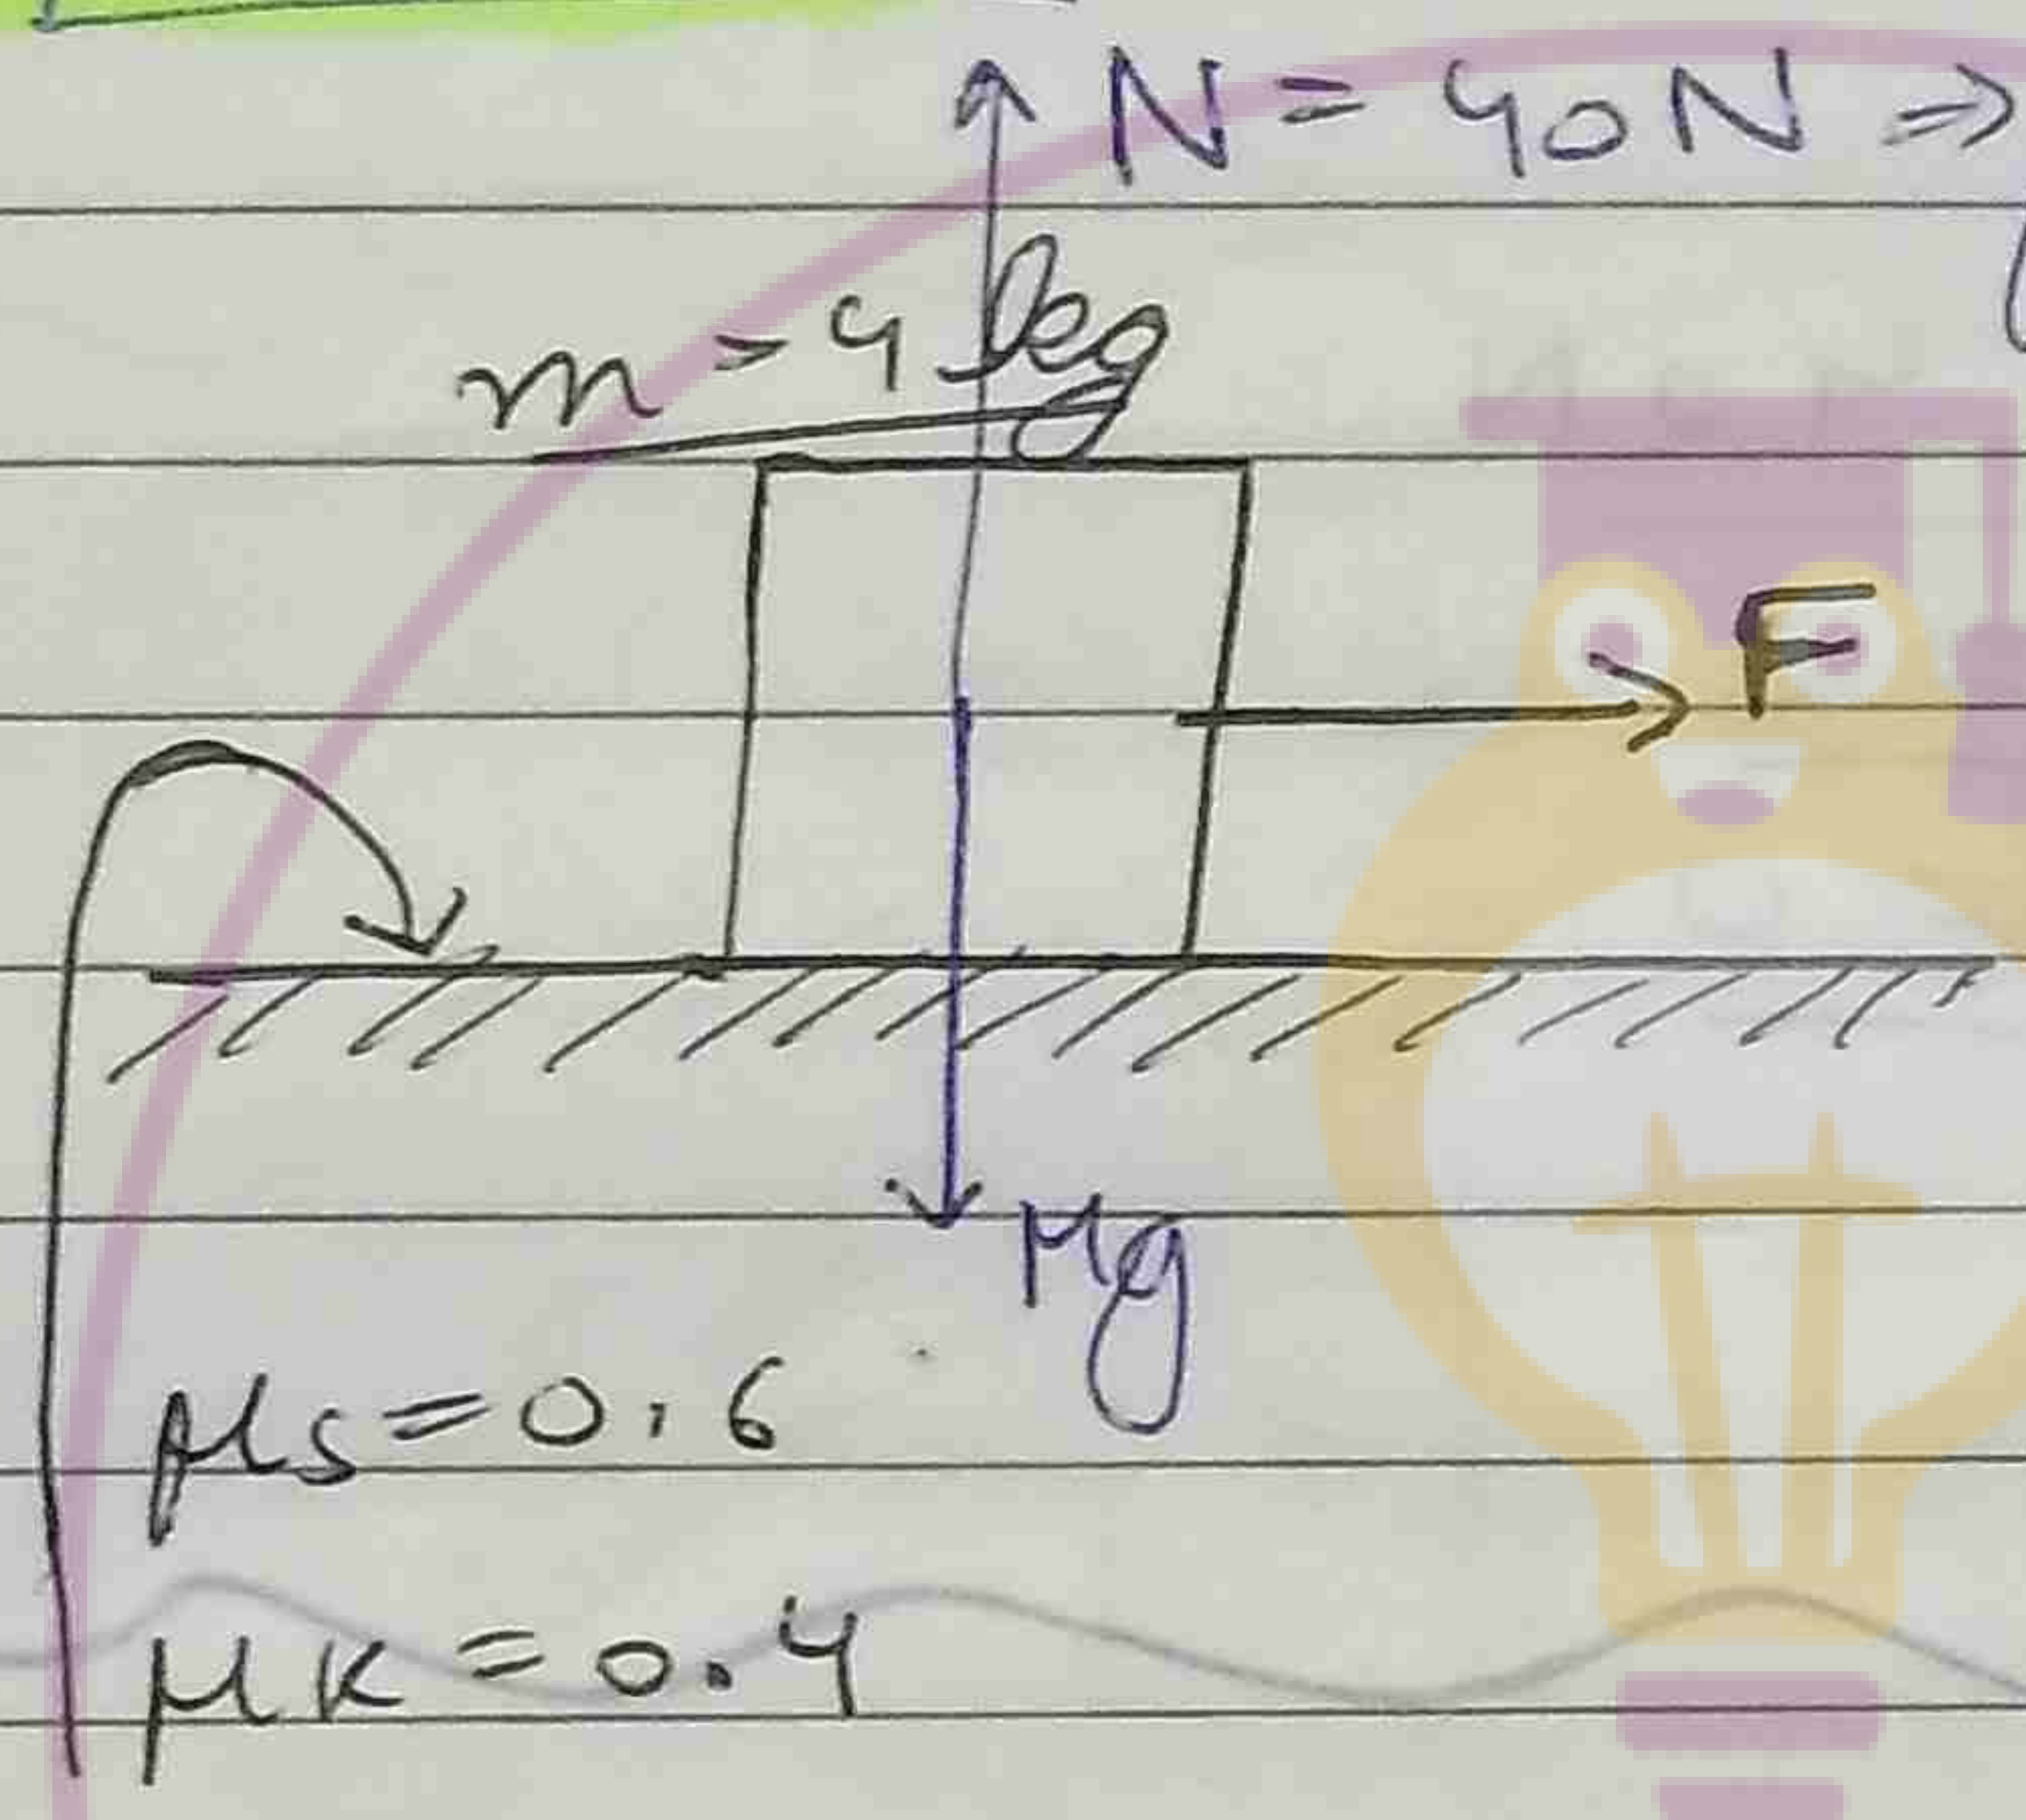 N = 40N ⇒
m = 4 kg
F
Mg
μs = 0.6
μk = 0.4